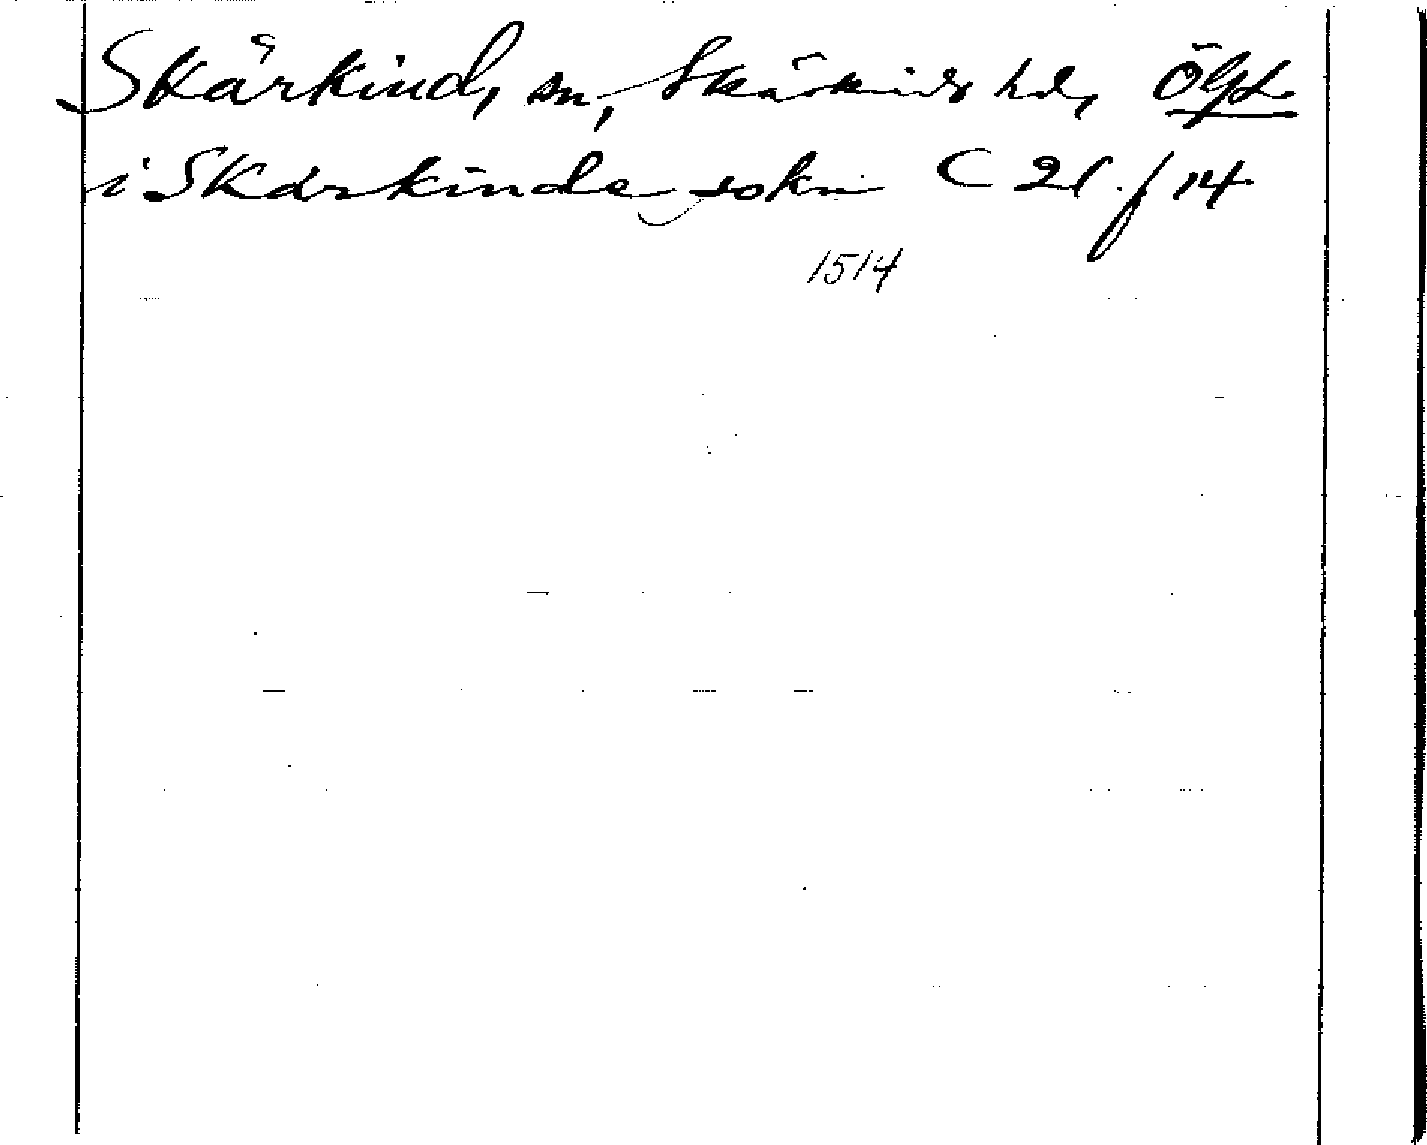 Skärkind, sn, Skärkinds hd, Ögl.
i Skärkinde sokn C 21. f 14
1514